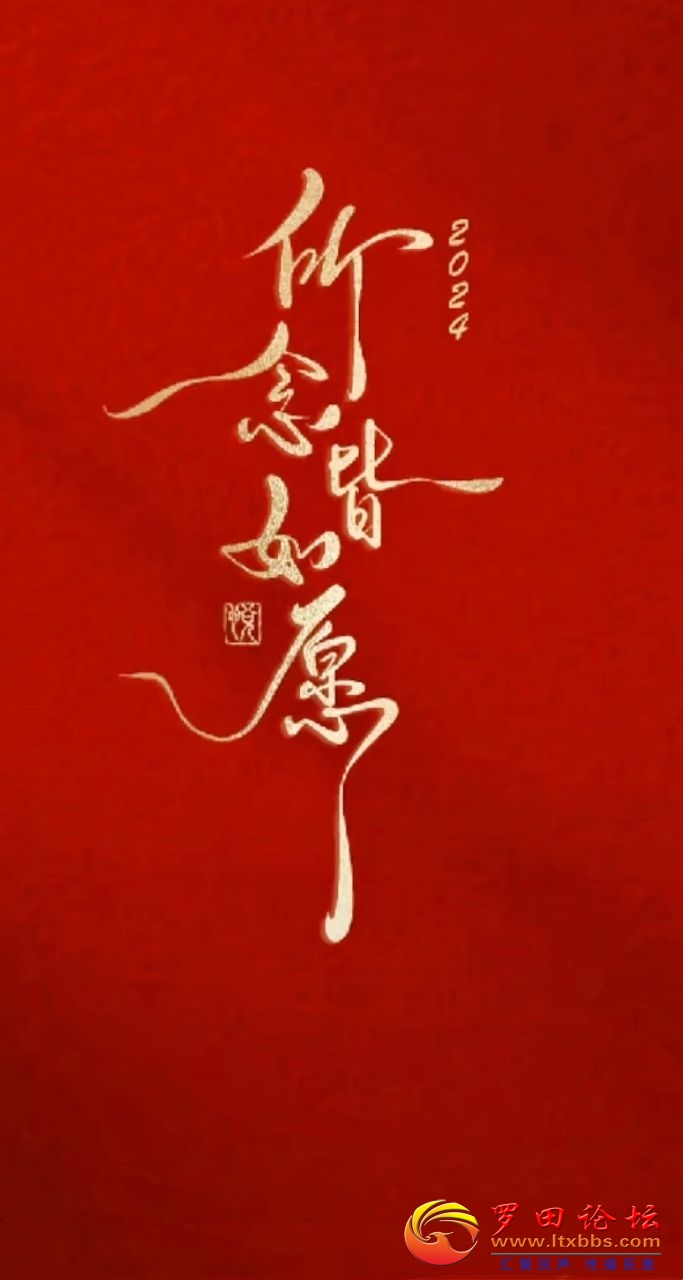 所念皆如愿
2024
悦
罗田论坛
www.ltxbbs.com